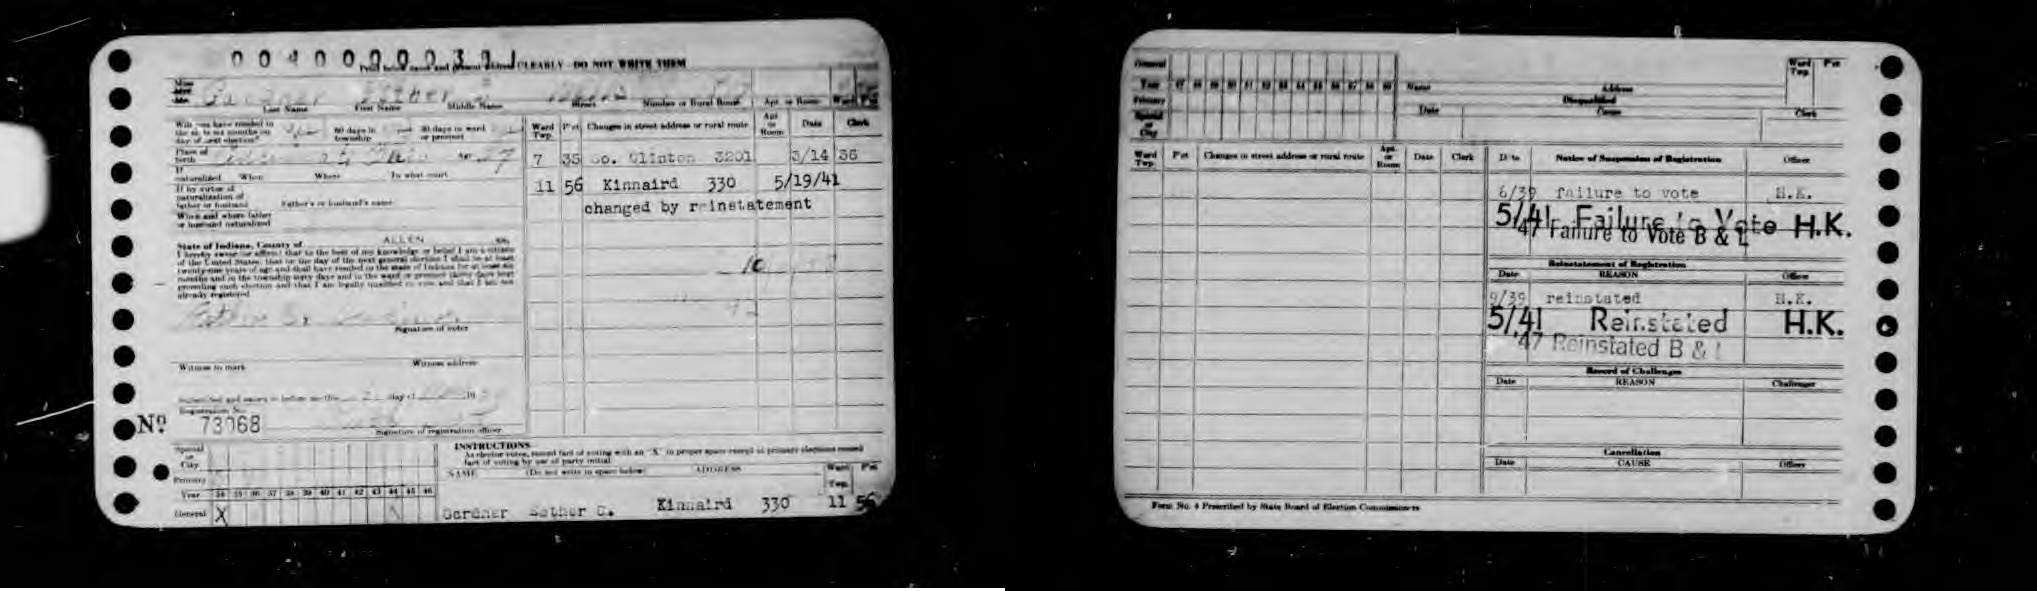 0 0 4 0 0 0 0 0 3 0 1
Print below name and present address CLEARLY - DO NOT WRITE THEM
Miss
Mrs.
Mr. Gardner Esther
Last Name First Name Middle Name Street Number or Rural Route Apt. or Room Ward Pct
Will you have resided in the state six months on day of next election? 60 days in township 30 days in ward or precinct
Place of birth Age 27
If naturalized When Where In what court
If by virtue of naturalization of father or husband Father's or husband's name
When and where father or husband naturalized
State of Indiana, County of ALLEN ss:
I hereby swear (or affirm) that to the best of my knowledge or belief I am a citizen
of the United States, that on the day of the next general election I shall be at least
twenty-one years of age and shall have resided in the state of Indiana for at least six
months and in the township sixty days and in the ward or precinct thirty days next
preceding such election and that I am legally qualified to vote and that I am not
already registered
Signature of voter
Witness to mark Witness address
Subscribed and sworn to before me this day of 19
Registration No.
No 73068
Signature of registration officer
Ward Twp. Pct Changes in street address or rural route Apt. or Room Date Clerk
7 35 So. Clinton 3201 3/14 36
11 56 Kinnaird 330 5/19/41
changed by reinstatement
10
42
Special or City
Primary
Year 34 35 36 37 38 39 40 41 42 43 44 45 46
General X
INSTRUCTIONS
As elector votes, record fact of voting with an "X" in proper space except at primary elections record
fact of voting by use of party initial
NAME (Do not write in space below) ADDRESS Ward Twp. Pct
Gardner Esther C. Kinnaird 330 11 56
General
Year 47 48 49 50 51 52 53 54 55 56 57 58 59
Primary
Special or City
Name Address Ward Twp. Pct
Disqualified
Date Cause Clerk
Ward Twp. Pct Changes in street address or rural route Apt. or Room Date Clerk
Date Notice of Suspension of Registration Officer
6/39 failure to vote H.K.
5/41 Failure to Vote H.K.
'47 Failure to Vote B & L
Reinstatement of Registration
Date REASON Officer
9/39 reinstated H.K.
5/41 Reinstated H.K.
'47 Reinstated B & L
Record of Challenges
Date REASON Challenger
Cancellation
Date CAUSE Officer
Form No. 4 Prescribed by State Board of Election Commissioners